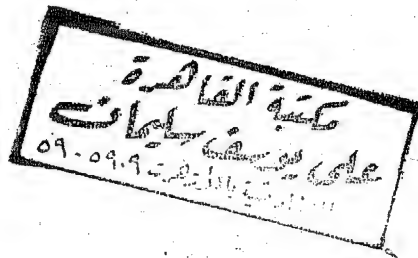 مكتبة القاهرة
على يوسف سليمان
ت ٥٩٠٥٩٠٩